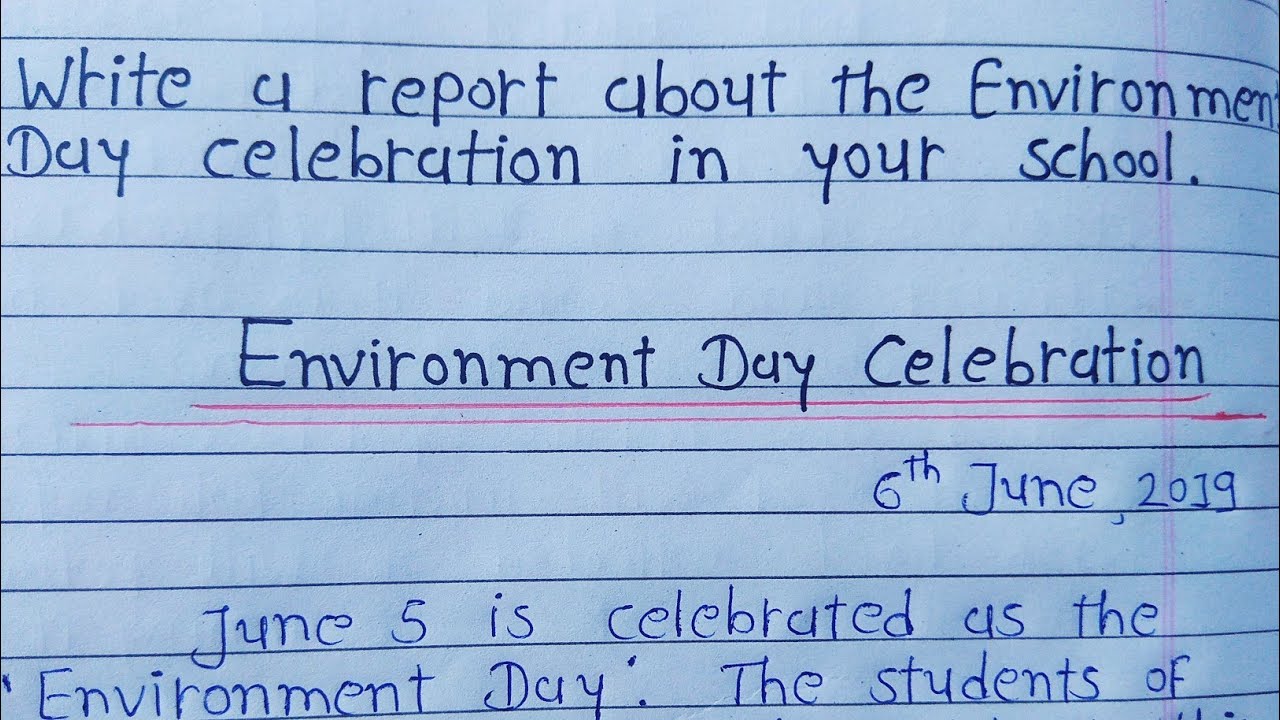 Write a report about the Environmen
Day celebration in your school.
Environment Day Celebration
6th June, 2019
June 5 is celebrated as the
'Environment Day'. The students of